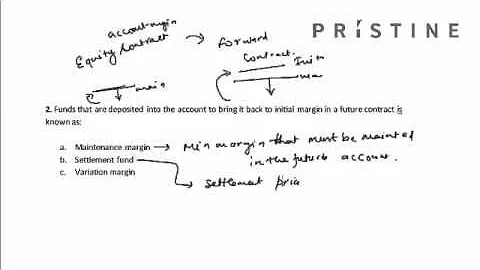 PRÍSTINE
account margin
Equity Contract → Forward
Contract.
Initi
main
2. Funds that are deposited into the account to bring it back to initial margin in a future contract is
known as:
a. Maintenance margin → Min margin that must be mainted
in the future account.
b. Settlement fund
c. Variation margin
settlement pric